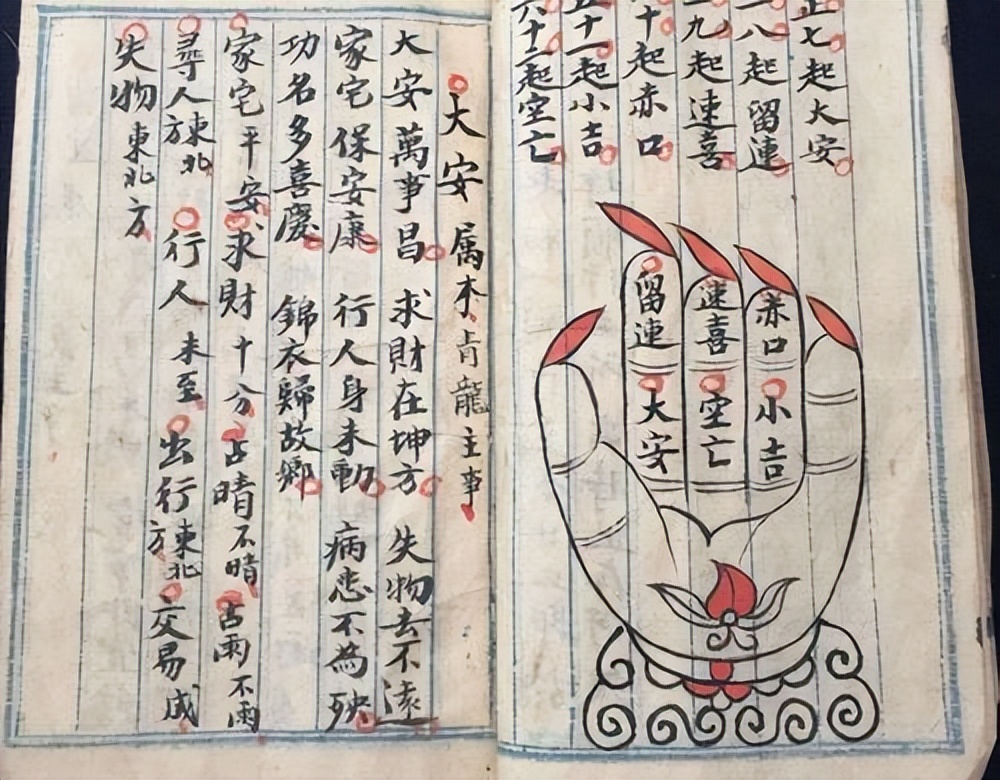 正七起大安
八起留連
九起速喜
十起赤口
五十一起小吉
六十二起空亡
赤口
小吉
速喜
空亡
留連
大安
大安 属木青龍主事
大安萬事昌 求財在坤方 失物去不遠
家宅保安康 行人身未動 病患不為殃
功名多喜慶 錦衣歸故鄉
家宅平安 求財十分 占晴不晴 占雨不雨
尋人東北方 行人未至 出行東北方 交易成
失物東北方